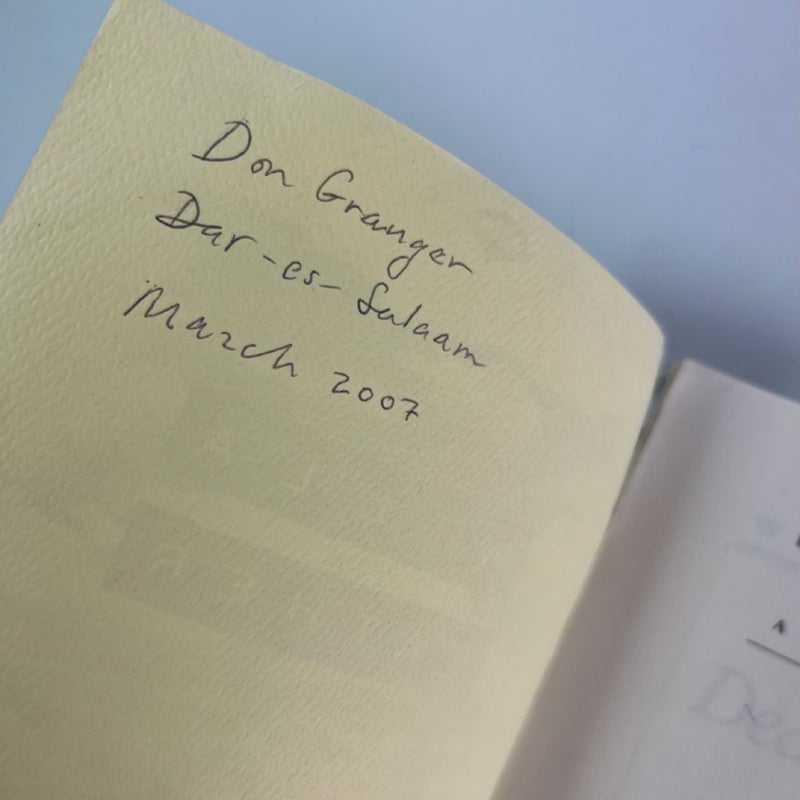 Don Granger
Dar-es-Salaam
March 2007